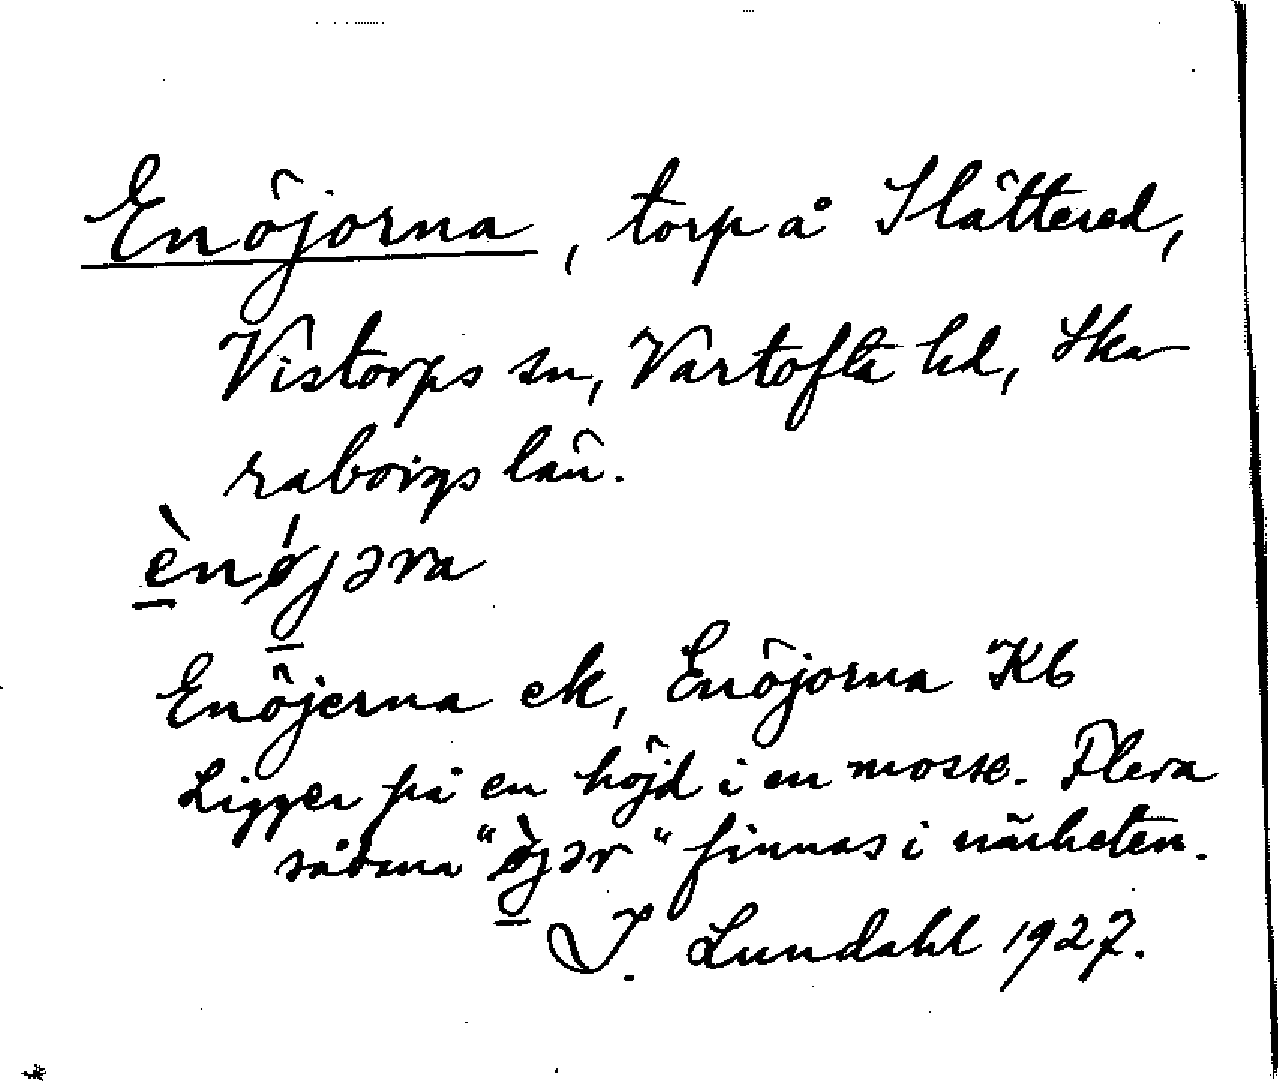 Enöjorna, torp å Slättered,
Vistorps sn, Vartofta hd, Ska
raborgs län.
ènǿjəra
Enöjerna ek, Enöjorna Kb
Ligger på en höjd i en mosse. Flera
sådana "ø̀jər" finnas i närheten.
I. Lundahl 1927.